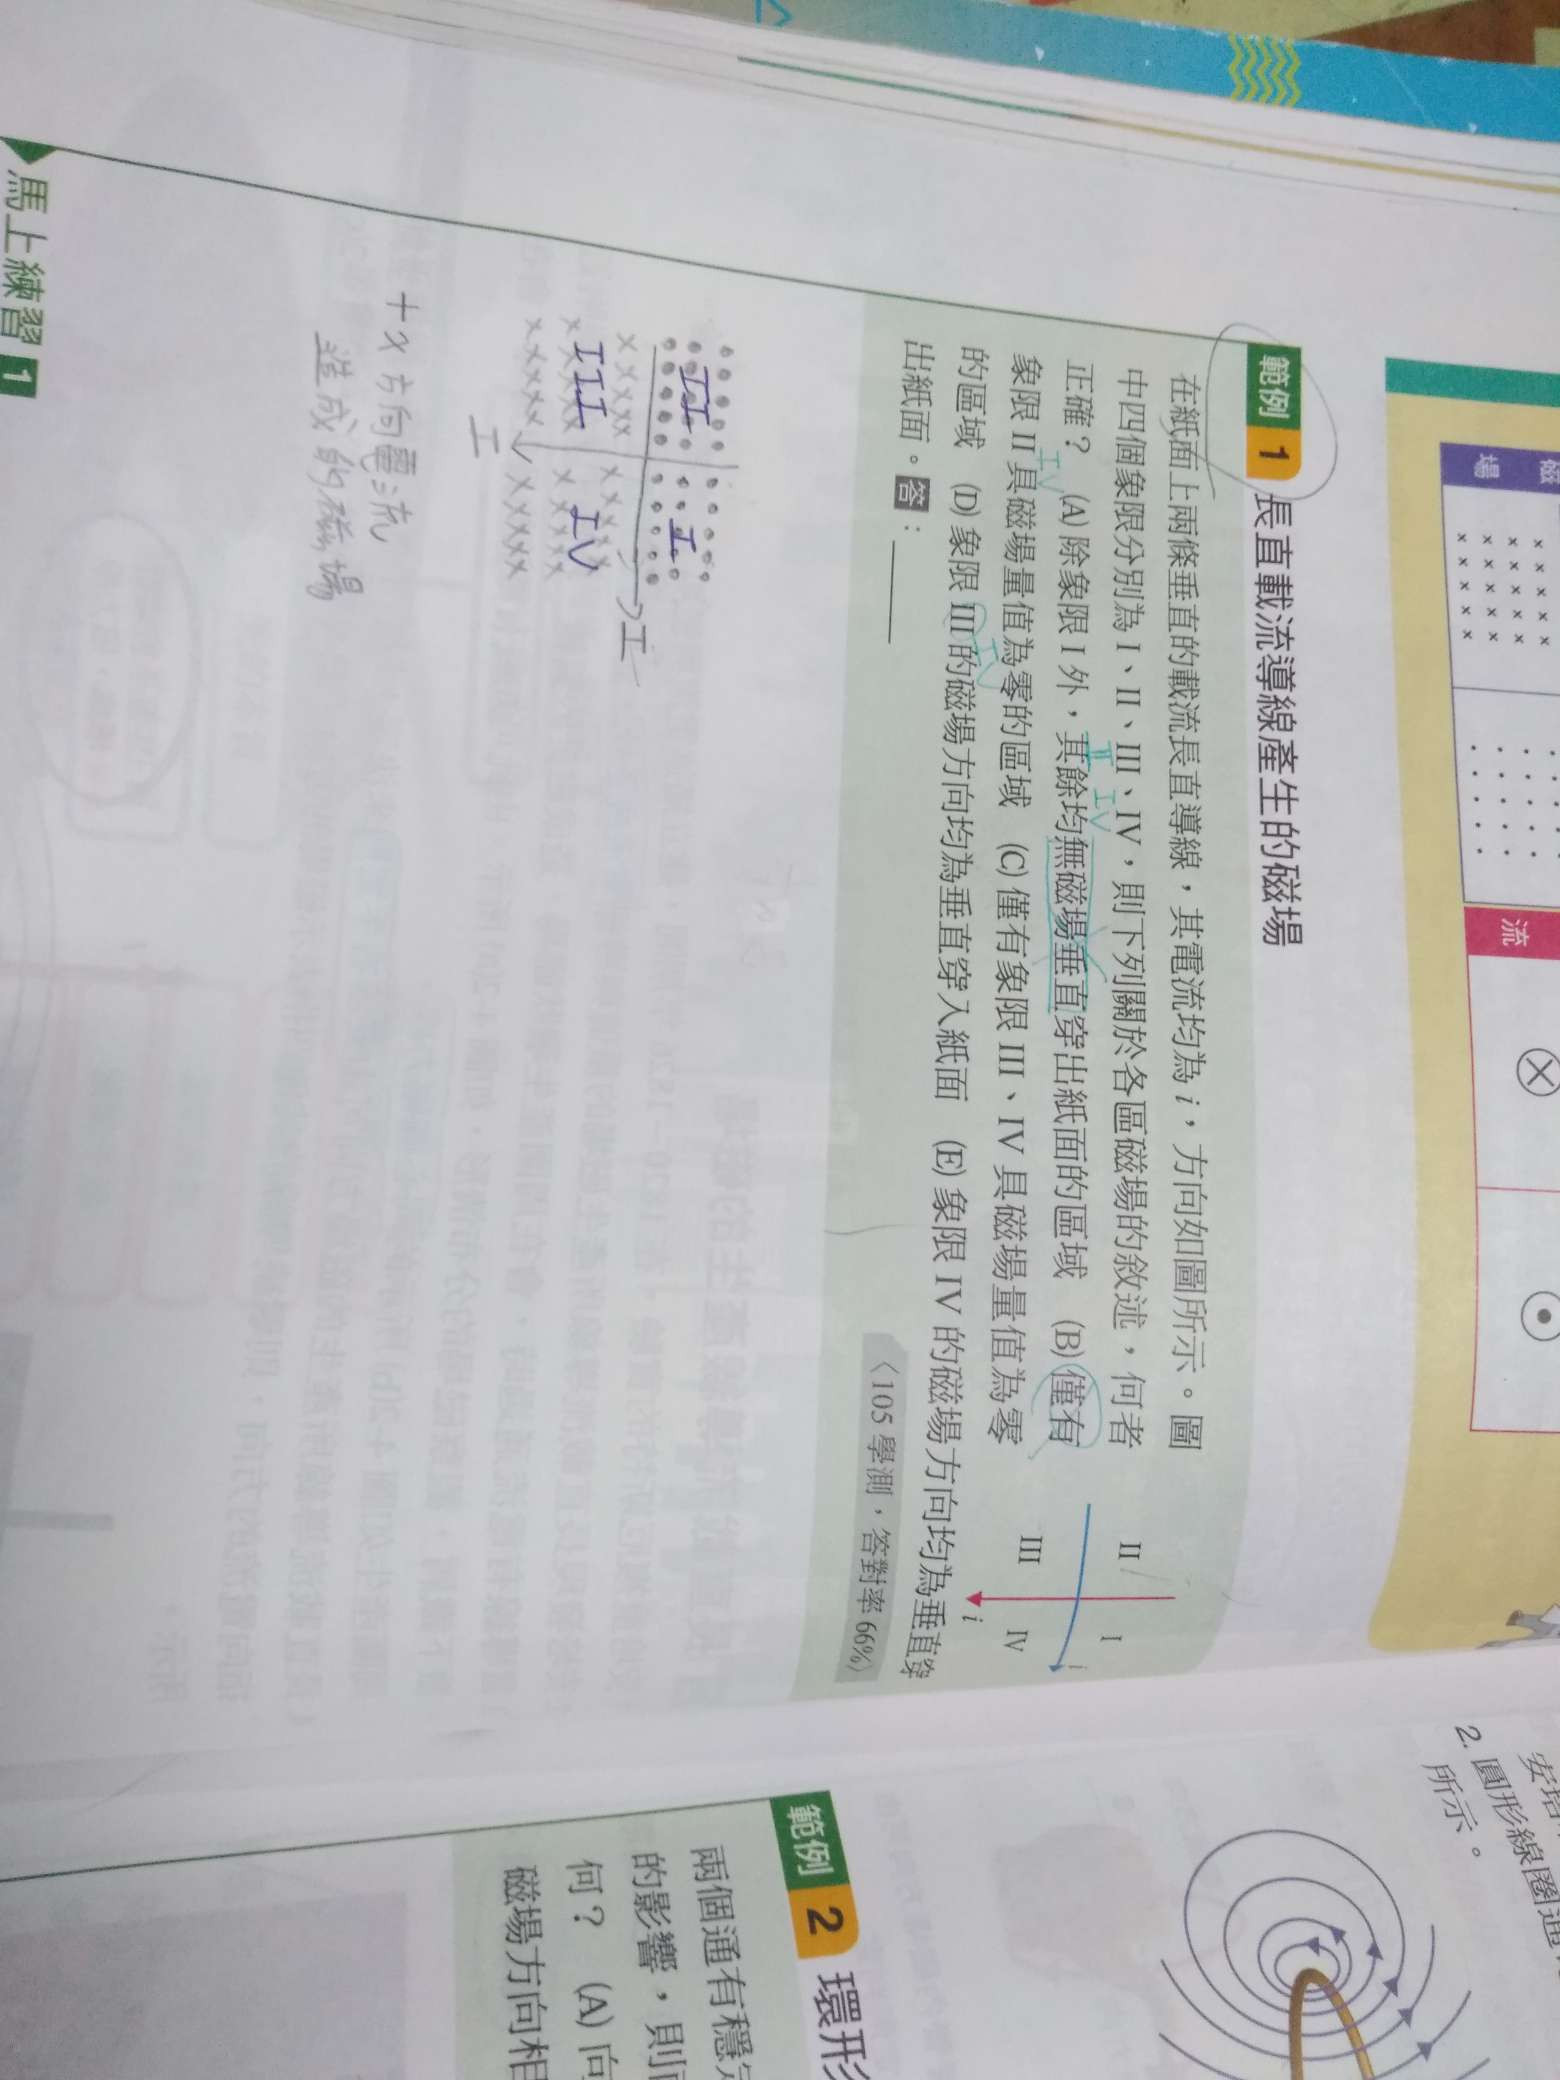 磁
場
流
範例 1 長直載流導線產生的磁場
在紙面上兩條垂直的載流長直導線，其電流均為 i，方向如圖所示。圖
中四個象限分別為 I、II、III、IV，則下列關於各區磁場的敘述，何者
正確？ (A) 除象限 I 外，其餘均無磁場垂直穿出紙面的區域 (B) 僅有
象限 II 具磁場量值為零的區域 (C) 僅有象限 III、IV 具磁場量值為零
的區域 (D) 象限 III 的磁場方向均為垂直穿入紙面 (E) 象限 IV 的磁場方向均為垂直穿
出紙面。答：
〈105 學測，答對率 66%〉
II
I
i
III
IV
i
IV
II IV
IV
II
I
I
III
IV
I
+x 方向電流
造成的磁場
馬上練習 1
2. 圓形線圈通
所示。
範例 2 環形
兩個通有穩
的影響，則
何？ (A) 向
磁場方向相